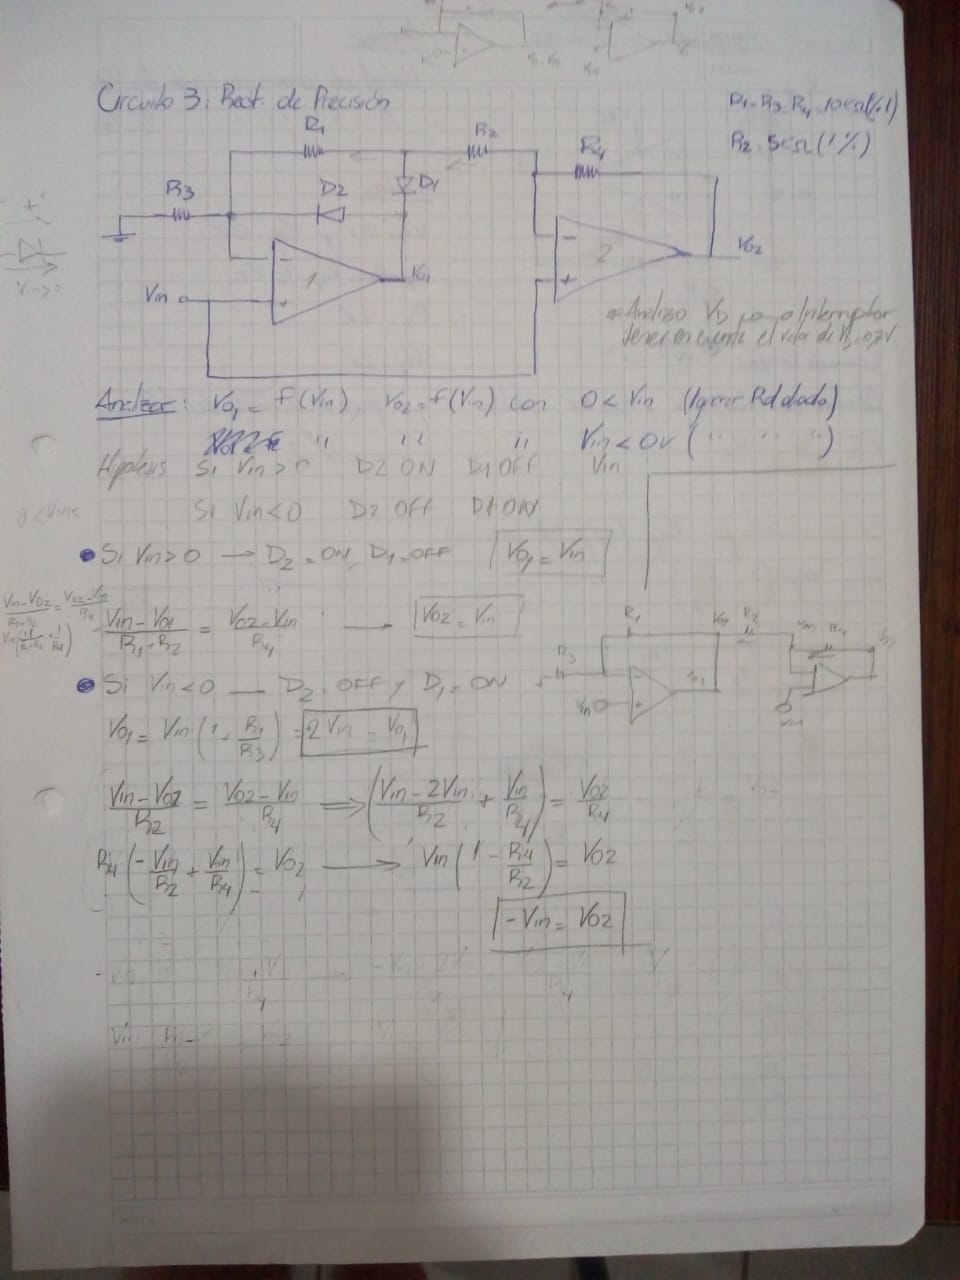 Circuito 3: Rect. de Precisión
R1=R3=R4=10kΩ(%1)
R2=5kΩ(1%)
R1
R2
R4
R3
D2
D1
Vin
1
Vo1
2
Vo2
+
Vin>0
* Analizo VD
tener en cuenta el valor de VD=0,7V
Analizar: Vo1=f(Vin) Vo2=f(Vin) con 0<Vin (Ignorar Rd diodo)
" " " Vin<0V ( " " " )
Hipótesis Si Vin>0 D2 ON D1 OFF Vin
Si Vin<0 D2 OFF D1 ON
Si Vin>0 → D2=ON D1=OFF Vo1=Vin
(Vin-Vo1)/(R1+R2) = (Vo2-Vin)/R4 → Vo2=Vin
Si Vin<0 — D2=OFF y D1=ON
R1
R2
R3
Vin
Vin
Vo1=Vin(1+R1/R3)=+2Vin=Vo1
(Vin-Vo2)/R2 = (Vo2-Vin)/R4 ⟹ ((Vin-2Vin)/R2 + Vin/R4) = Vo2/R4
R4(-Vin/R2 + Vin/R4) = Vo2 → Vin(1-R4/R2) = Vo2
-Vin=Vo2